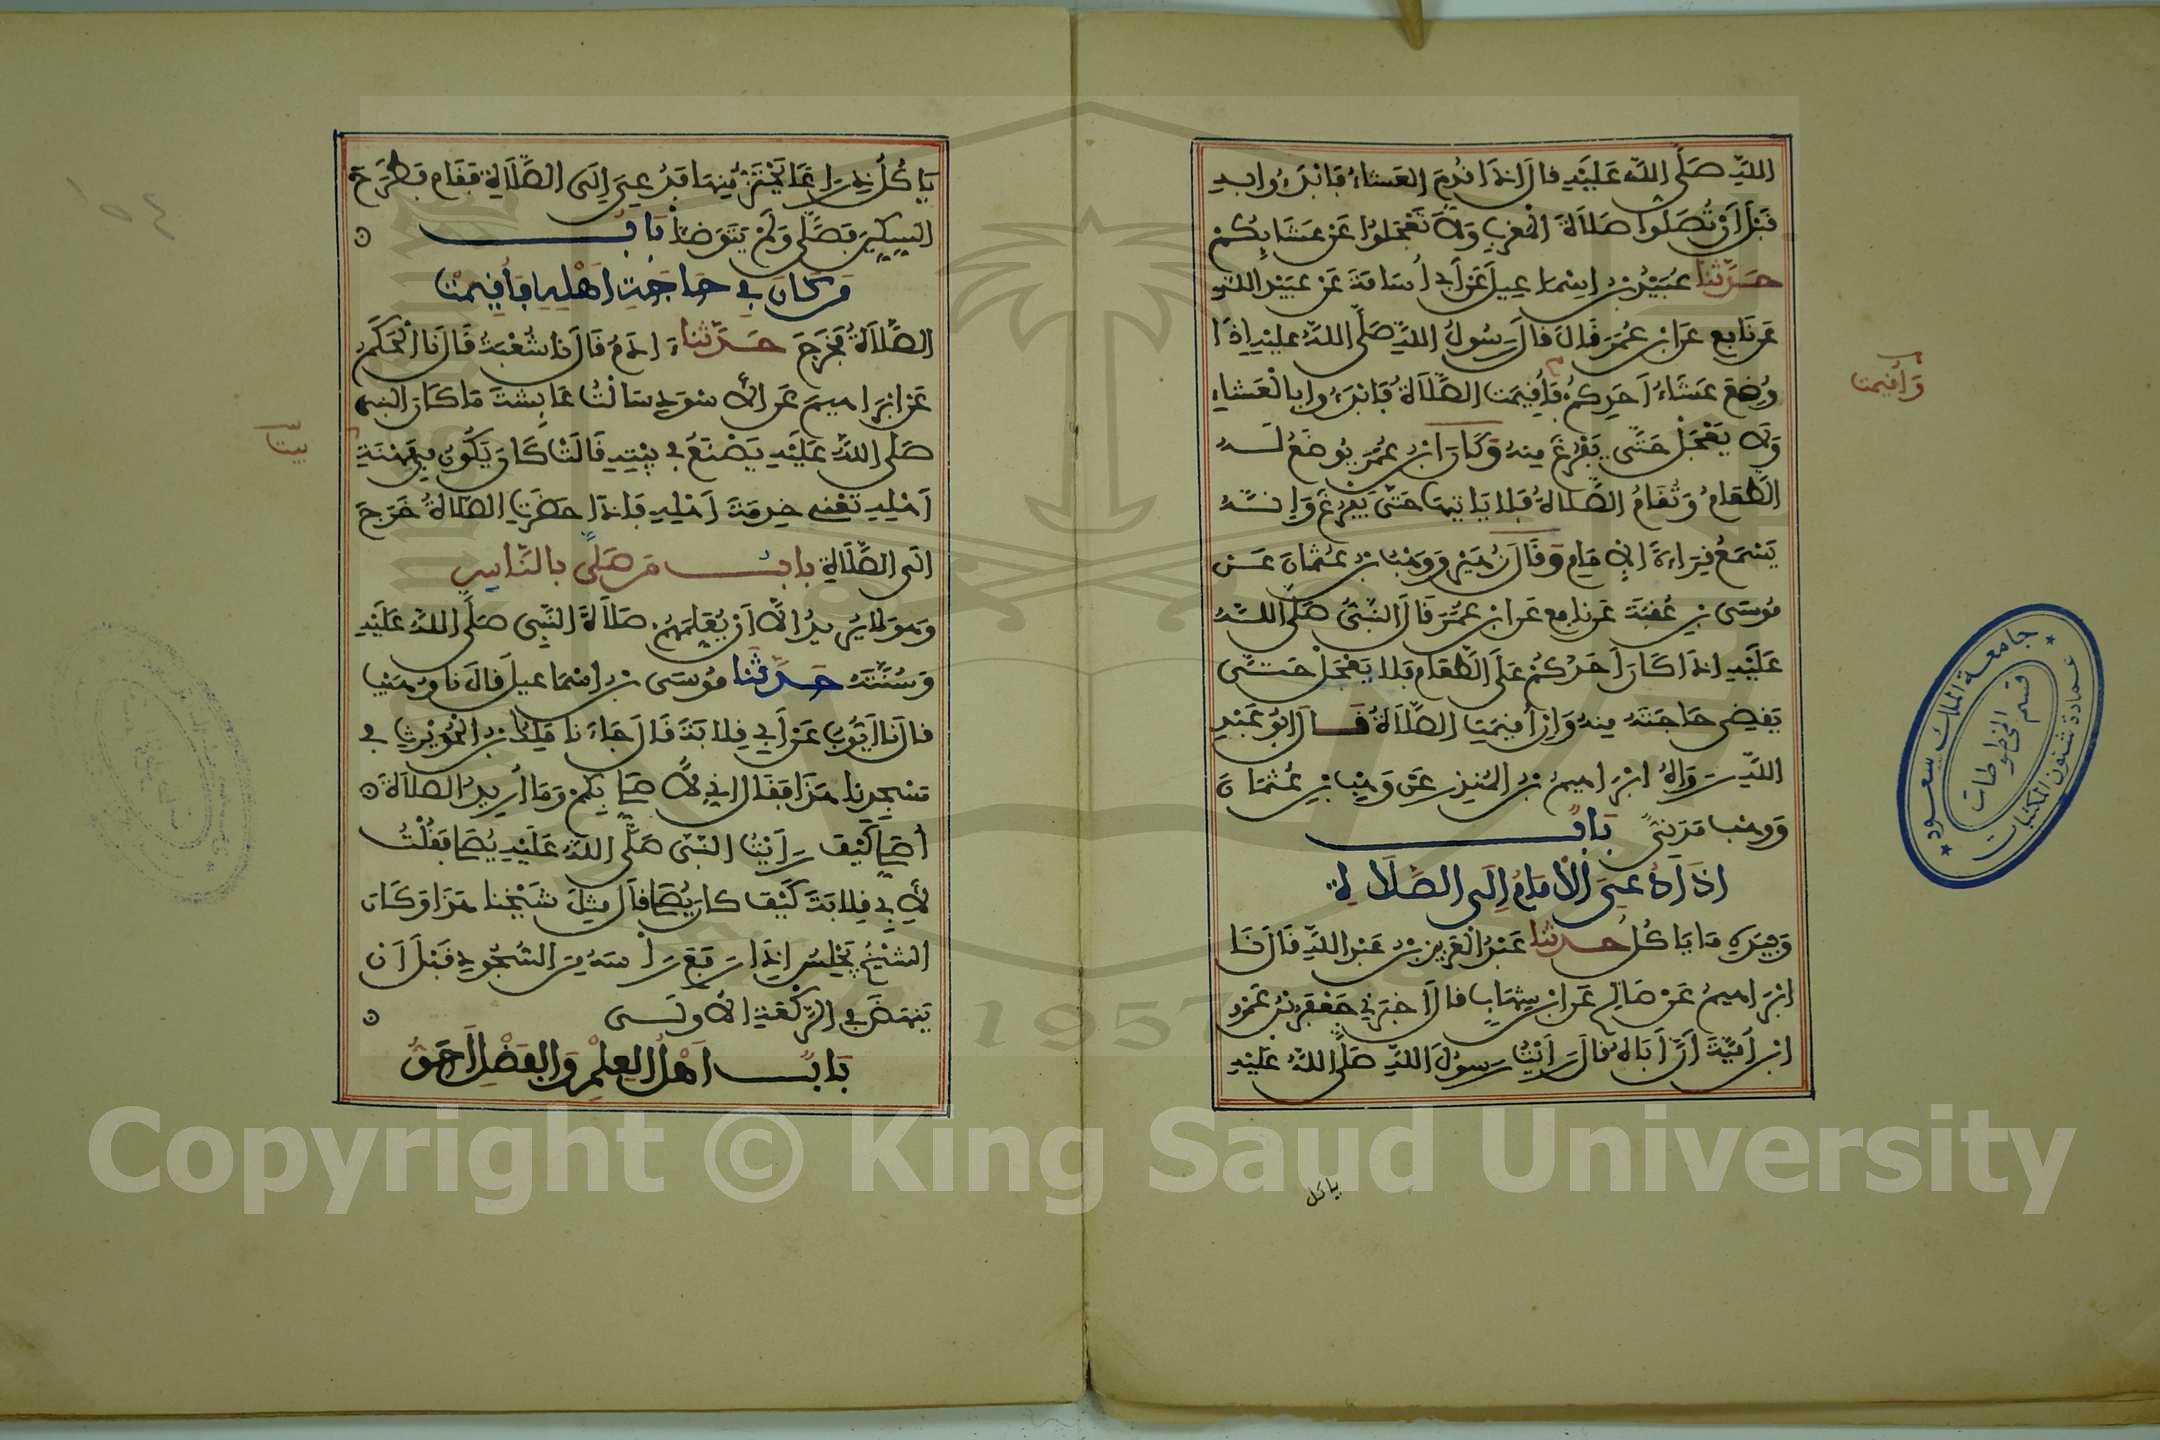 اللَّهِ صَلَّى اللَّهُ عَلَيْهِ قال اذَا قُدِّمَ العَشاءُ فَابْدَءُوا بِهِ
قَبْلَ أَنْ تُصَلُّوا صَلاَةَ الْمَغْرِبِ وَلاَ تَعْجَلُوا عَنْ عَشَائِكُمْ
حَدَّثَنَا عُبَيْدُ بْنُ اِسْمَاعِيلَ عَنْ أَبِي أُسَامَةَ عَنْ عُبَيْدِ اللَّهِ
عَنْ نَافِعٍ عَنِ ابْنِ عُمَرَ قَالَ قال رَسُولُ اللَّهِ صَلَّى اللَّهُ عَلَيْهِ اِذَا
وُضِعَ عَشَاءُ أَحَدِكُمْ فَأُقِيمَتِ الصَّلاَةُ فَابْدَءُوا بِالْعَشَاءِ
وَأُقِيمَت
وَلاَ يَعْجَلْ حَتَّى يَفْرُغَ مِنْهُ وَكَانَ ابْنُ عُمَرَ يُوضَعُ لَهُ
الطَّعَامُ وَتُقَامُ الصَّلاةُ فَلا يَاتِيهَا حَتَّى يَفْرُغَ وَإِنَّهُ
يَسْمَعُ قِرَاءَةَ الإِمَامِ وَقَالَ زُهَيْرٌ وَوَهْبُ بْنُ عُثْمَانَ عَنْ
مُوسَى بْنِ عُقْبَةَ عَنْ نَافِعٍ عَنِ ابْنِ عُمَرَ قَالَ النَّبِيُّ صَلَّى اللَّهُ
عَلَيْهِ اذَا كَانَ أَحَدُكُمْ عَلَى الطَّعَامِ فَلا يَعْجَلْ حَتَّى
يَقْضِيَ حَاجَتَهُ مِنْهُ وَإِنْ أُقِيمَتِ الصَّلاَةُ قَالَ أَبُو عَبْدِ
اللَّهِ رَوَاهُ ابْرَاهِيمُ بْنُ المُنْذِرِ عَنْ وَهْبِ بْنِ عُثْمَانَ
وَوَهْبٌ مَدَنِيٌّ بَابٌ
اذَا دُعِيَ الْامَامُ إِلَى الصَّلَاةِ
وَبِيَدِهِ مَا يَاكُلُ حدثنا عَبْدُ الْعَزِيزِ بْنُ عَبْدِ اللَّهِ قَالَ نَا
ابْرَاهِيمُ عَنْ صَالِحٍ عَنِ ابْنِ شِهَابٍ قال أَخْبَرَنِي جَعْفَرُ بْنُ عَمْرِو
ابْنِ أُمَيَّةَ أَنَّ أَبَاهُ قَالَ رَأَيْتُ رَسُولَ اللَّهِ صَلَّى اللَّهُ عَلَيْهِ
ياكل
يَاكُلُ ذِرَاعًا يَحْتَزُّ مِنْهَا فَدُعِيَ إِلَى الصَّلاَةِ فَقَامَ فَطَرَحَ
السِّكِّينَ فَصَلَّى وَلَمْ يَتَوَضَّأْ بَابُ
مَنْ كَانَ فِي حَاجَةِ أَهْلِهِ فَأُقِيمَتِ
الصَّلاَةُ فَخَرَجَ حَدَّثَنَا ءَادَمُ قَالَ نا شُعْبَةُ قَالَ نَا الْحَكَمُ
عَنْ ابْرَاهِيمَ عَنِ الأَسْوَدِ سَالْتُ عَايِشَةَ مَا كَانَ النبي
صَلَّى اللَّهُ عَلَيْهِ يَصْنَعُ فِي بَيْتِهِ قَالَتْ كَانَ يَكُونُ فِي مِهْنَةِ
بيت
أَهْلِهِ تَعْنِي خِدْمَةَ أَهْلِهِ فَإِذَا حَضَرَتِ الصَّلاةُ خَرَجَ
الَى الصَّلاَةِ بابُ مَنْ صَلَّى بالنَّاسِ
وَهوَ لا يُرِيدُ الاَّ أَنْ يُعَلِّمَهُمْ صَلاَةَ النَّبِيِّ صَلَّى اللَّهُ عَلَيْهِ
وَسُنَّتَهُ حَدَّثَنَا مُوسَى بْنُ اسْمَاعِيلَ قالَ نَا وُهَيْبٌ
قالَ نا أَيُّوبُ عَنْ أَبِي قِلابَةَ قَالَ جَاءَنَا مَالِكُ بْنُ الْحُوَيْرِثِ فِي
مَسْجِدِنَا هَذَا فَقَالَ إِنِّي لأُصَلِّي بِكُمْ وَمَا أُرِيدُ الصَّلاَةَ
أُصَلِّي كَيْفَ رَأَيْتُ النَّبِيَّ صَلَّى اللَّهُ عَلَيْهِ يُصَلِّي فَقُلْتُ
لأَبِي قِلابَةَ كَيْفَ كانَ يُصَلِّي قالَ مِثْلَ شَيْخِنَا هَذَا وَكَانَ
الشَّيْخُ يَجْلِسُ إِذَا رَفَعَ رَأْسَهُ مِنَ السُّجُودِ قَبْلَ أَن
يَنْهَضَ فِي الرَّكْعَةِ الأُولَى
بَابٌ أَهْلُ العِلْمِ وَالفَضْلِ أَحَقُّ
جامعة الملك سعود
قسم المخطوطات
عمادة شئون المكتبات
١٥٤
1957
Copyright © King Saud University